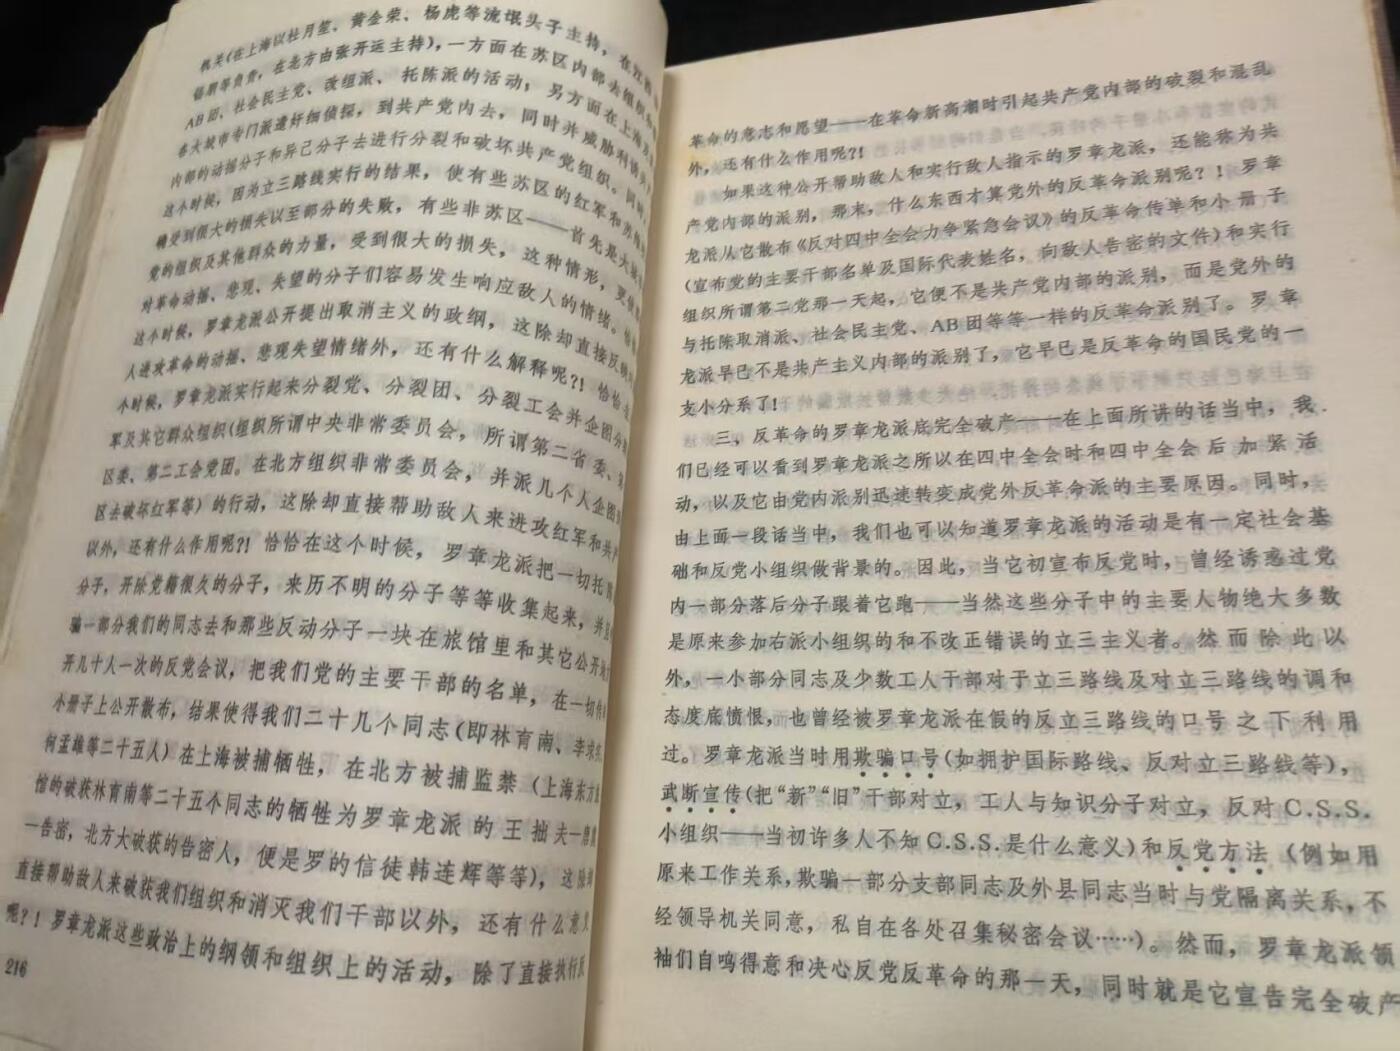 机关(在上海以杜月笙、黄金荣、杨虎等流氓头子主持，在江西
等负责，在北方由张开运主持)，一方面在苏区内部去组织和
AB团、社会民主党、改组派、托陈派的活动；另方面在上海及
各大城市专门派遣奸细侦探，到共产党内去，同时并威胁利诱共
内部的动摇分子和异己分子去进行分裂和破坏共产党组织。同时，
这个时候，因为立三路线实行的结果，使有些苏区的红军和苏维
确受到很大的损失以至部分的失败，有些非苏区——首先是大城
党的组织及其他群众的力量，受到很大的损失，这种情形，更使
对革命动摇、悲观、失望的分子们容易发生响应敌人的情绪。恰恰
这个时候，罗章龙派公开提出取消主义的政纲，这除却直接反映
人进攻革命的动摇、悲观失望情绪外，还有什么解释呢？！恰恰
个时候，罗章龙派实行起来分裂党、分裂团、分裂工会并企图分
军及其它群众组织(组织所谓中央非常委员会，所谓第二省委、
区委、第二工会党团。在北方组织非常委员会，并派几个人企图
区去破坏红军等)的行动，这除却直接帮助敌人来进攻红军和共产
以外，还有什么作用呢？！恰恰在这个时候，罗章龙派把一切托
分子，开除党籍很久的分子，来历不明的分子等等收集起来，并
骗一部分我们的同志去和那些反动分子一块在旅馆里和其它公开
开几十人一次的反党会议，把我们党的主要干部的名单，在一切传
小册子上公开散布，结果使得我们二十几个同志(即林育南、李求实、
何孟雄等二十五人)在上海被捕牺牲，在北方被捕监禁(上海东方
馆的破获林育南等二十五个同志的牺牲为罗章龙派的王拙夫—唐
—告密，北方大破获的告密人，便是罗的信徒韩连辉等等)，这除
直接帮助敌人来破获我们组织和消灭我们干部以外，还有什么意义
呢？！罗章龙派这些政治上的纲领和组织上的活动，除了直接执行反
216
革命的意志和愿望——在革命新高潮时引起共产党内部的破裂和混乱
外，还有什么作用呢？！
如果这种公开帮助敌人和实行敌人指示的罗章龙派，还能称为共
产党内部的派别，那末，什么东西才算党外的反革命派别呢？！罗章
龙派从它散布《反对四中全会力争紧急会议》的反革命传单和小册子
(宣布党的主要干部名单及国际代表姓名，向敌人告密的文件)和实行
组织所谓第二党那一天起，它便不是共产党内部的派别，而是党外的
与托陈取消派、社会民主党、AB团等等一样的反革命派别了。罗章
龙派早已不是共产主义内部的派别了，它早已是反革命的国民党的一
支小分系了！
三、反革命的罗章龙派底完全破产——在上面所讲的话当中，我
们已经可以看到罗章龙派之所以在四中全会时和四中全会后加紧活
动，以及它由党内派别迅速转变成党外反革命派的主要原因。同时，
由上面一段话当中，我们也可以知道罗章龙派的活动是有一定社会基
础和反党小组织做背景的。因此，当它初宣布反党时，曾经诱惑过党
内一部分落后分子跟着它跑——当然这些分子中的主要人物绝大多数
是原来参加右派小组织的和不改正错误的立三主义者。然而除此以
外，一小部分同志及少数工人干部对于立三路线及对立三路线的调和
态度底愤恨，也曾经被罗章龙派在假的反立三路线的口号之下利用
过。罗章龙派当时用欺骗口号(如拥护国际路线、反对立三路线等)，
武断宣传(把“新”“旧”干部对立，工人与知识分子对立，反对C.S.S.
小组织——当初许多人不知C.S.S.是什么意义)和反党方法(例如用
原来工作关系，欺骗一部分支部同志及外县同志当时与党隔离关系，不
经领导机关同意，私自在各处召集秘密会议……)。然而，罗章龙派领
袖们自鸣得意和决心反党反革命的那一天，同时就是它宣告完全破产